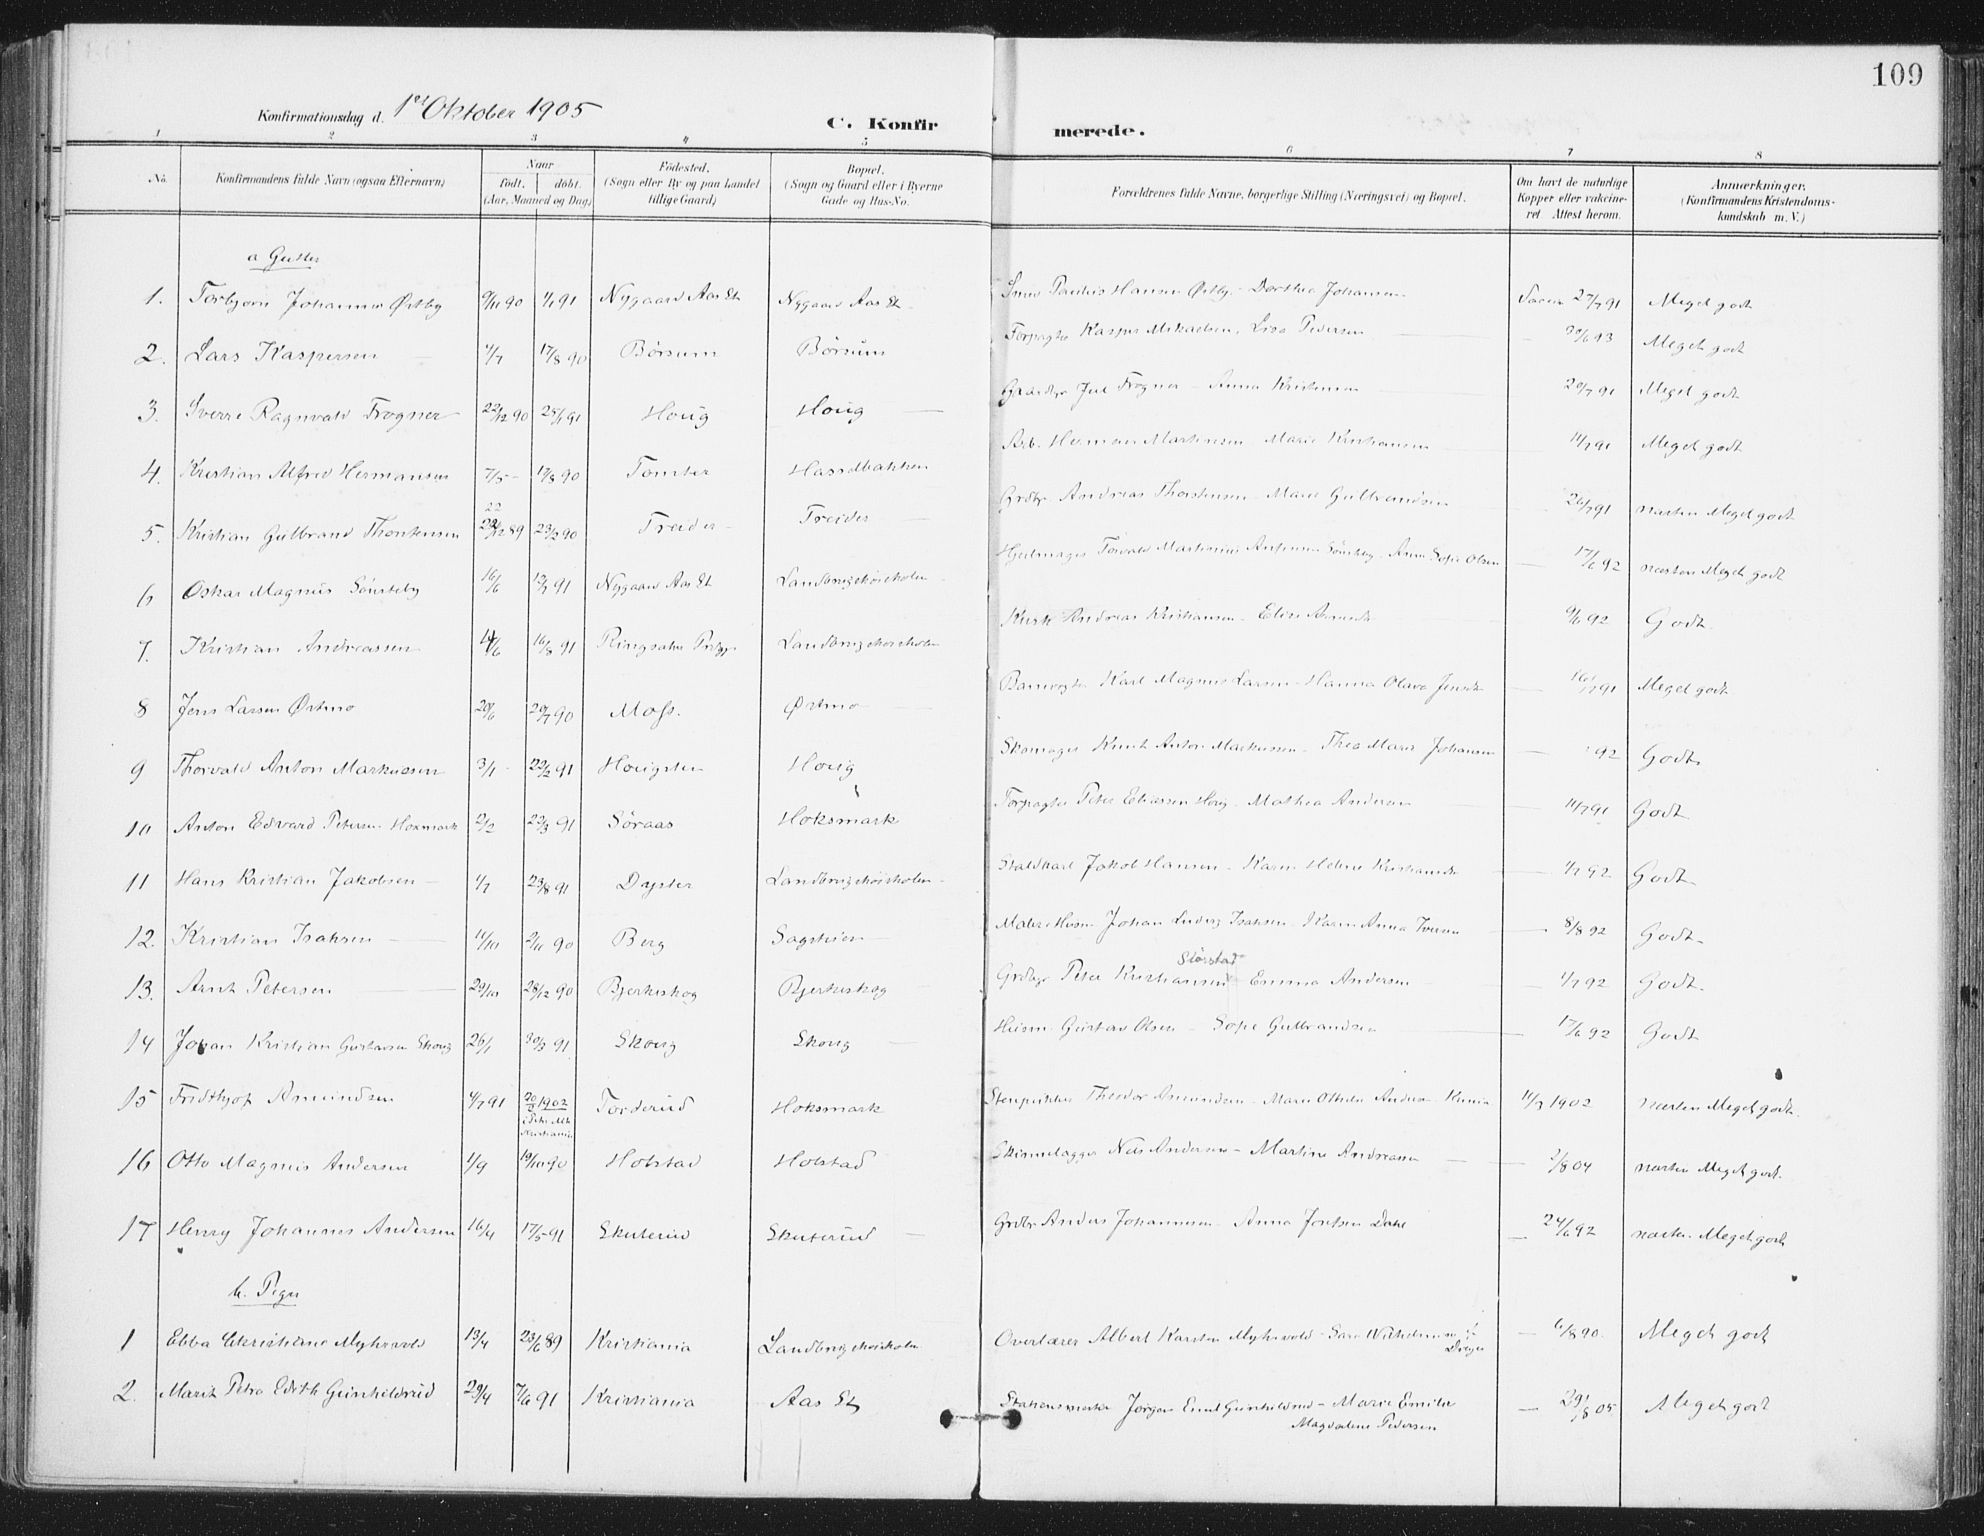 109
Konfirmationsdag d. 1ste Oktober 1905
C. Konfirmerede.
1 2 3 4 5 6 7 8
No. Konfirmandens fulde Navn (ogsaa Efternavn) Naar født. døbt. (Aar, Maaned og Dag) Fødested. (Sogn eller By og paa Landet tillige Gaard) Bopæl. (Sogn og Gaard eller i Byerne Gade og Hus-No. Forældrenes fulde Navne, borgerlige Stilling (Næringsvei) og Bopæl. Om havt de naturlige Kopper eller vakcineret Attest herom. Anmærkninger. (Konfirmandens Kristendomskundskab m. V.)
a Gutter
1. Torbjørn Johannes Østby 9/11 90 1/1 91 Nygaard Aas St Nygaard Aas St. Hansen Østby - Dorthea Johansen 27/7 91 Meget godt
2. Lars Kaspersen 4/7 17/8 90 Børsum Børsum Forpagter Kasper Mikaelsen, Lisa Pedersen 30/6 93 Meget godt
3. Sverre Ragnvald Frogner 22/12 90 25/1 91 Houg Houg Juel Frogner - Anna Kristensen 20/7 91 Meget godt
4. Kristian Alfred Hermansen 7/5 - 17/8 90 Tomter Arb. Herman Martinsen Marie Kristiansen 11/7 91 Meget godt
5. Kristian Gulbrand Thorstensen 22 22/12 89 23/2 90 Treider - Treider Grdbr. Andreas Thorstensen - Marie Gulbrandsen 26/7 91 næsten Meget godt
6 Oskar Magnus Sønsteby 16/6 13/7 91 Nygaard Aas St Landbrugshøiskolen Hjulmager Torvald Martinius Sønsteby - Anna Sofie Olsen 17/6 92 næsten Meget godt
7. Kristian Andreassen 14/6 16/8 91 Ringsaker Landbrugshøiskolen Kusk Andreas Kristiansen - Elise 9/6 92 Godt.
8 Jens Larsen Østmo 20/6 20/7 90 Moss. Østmo Karl Magnus Larsen - Hanna Olava 16/7 91 Meget godt
9 Thorvald Anton Markussen 3/1 - 22/2 91 Hougsten Houg Skomager Knut Anton Markussen - Thea Marie Johansen 92 Godt
10 Anton Edvard Petersen Hoxmark 2/2 22/3 91 Søraas Hoksmark Forpagter Peter Eliassen Houg - Mathea Andersen 11/7 91 Godt
11 Hans Kristian Jakobsen - 4/7 23/8 91 Dyster Landbrugshøiskolen - Staldkarl Jakob Hansen - Karen Helene 1/7 92 Godt
12. Kristian Isaksen 11/10 2/11 90 Berg Maler Husm. Johan Ludvig Isaksen - Karen Anna Iversen 8/8 92 Godt.
13. Arnt Petersen 29/10 28/12 90 Bjerkeskog Bjerkeskog Grdbr Peter Kristiansen Emma Andersen 1/7 92 Godt.
14 Johan Kristian Gustavsen Skoug 26/1 30/3 91 Skoug Skoug Husm. Gustav Olsen - Sofie Gulbrandsen 17/6 92 Godt
15 Fridthjof Amundsen 4/7 91 1902 Kristiania Torderud Hoksmark Theodor Amundsen - Marie Othilie 11/3 1902 næsten Meget godt.
16 Otto Magnus Andersen 1/9 19/10 90 Holstad Holstad Nils Andersen - Martine Andreassen 2/8 04 næsten Meget godt.
17 Henry Johannes Andersen 16/4 17/5 91 Skuterud Skuterud Grdbr Anders Johannesen - Anna Dahl 24/6 92 næsten Meget godt
b. Piger
1 Ebba Christiane Myhrvold 13/4 23/6 89 Kristiania Landbrugshøiskolen Overlærer Albert Karsten Myhrvold - 6/8 90. Meget godt
2. Marit Petra Edith Gunhildrud 29/4 7/6 91 Kristiania Aas St, Stationsmester Jørgen Gunhildrud - Marie Emilie Magdalene Pedersen 29/8 05 Meget godt